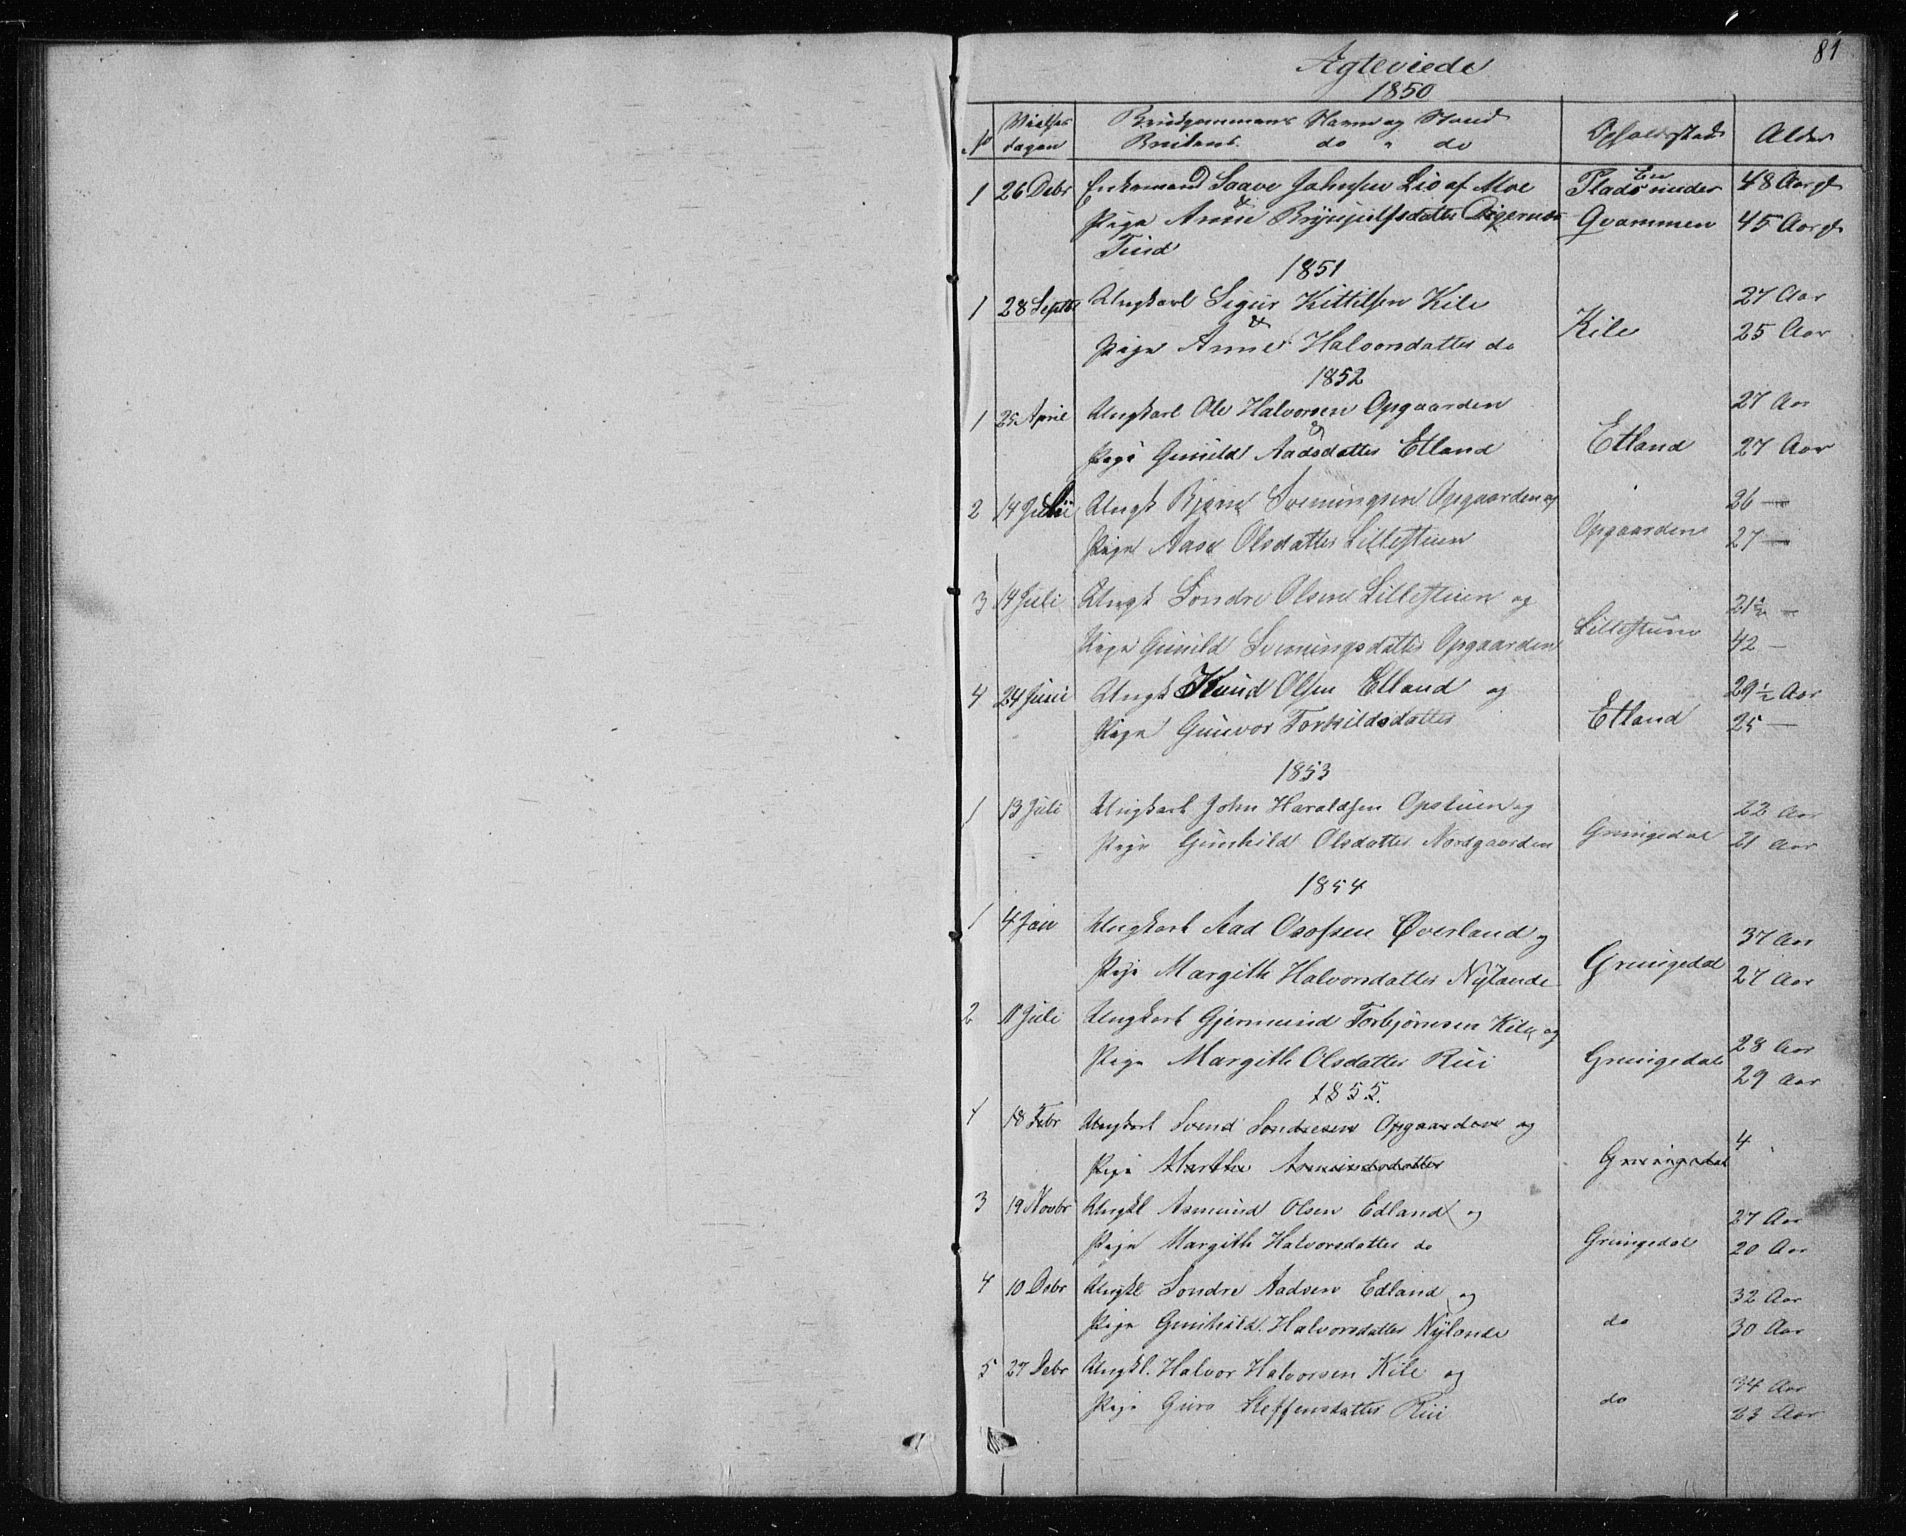 81
Agteviede
1850
No Vielses dagen Brudgommens Navn og Stand Opholdssted Alder
Brudens do " do
1 26 Debr Enkemand Saave Johnsen Lio af Moe En Pladsinder 48 Aar gl
&
Pige Anne Brynjulfsdatter Qvammen 45 Aar gl
Tind
1851
1 28 Septbr Ungkarl Sigur Kittilsen Kile Kile 27 Aar
&
Pige Anne Halvorsdatter do 25 Aar
1852
1 25 April Ungkarl Ole Halvorsen Opgaarden Etland 27 Aar
&
Pige Gunild Aadsdatter Etland 27 Aar
2 14 Juli Ungk Bjørn Svenungsen Opgaarden og Opgaarden 26 —
Pige Aase Olsdatter Lillestuen 27 —
3 14 Juli Ungk Sondre Olsen Lillestuen og Lillestuen 21½ —
Pige Gunild Svenungsdatter Opgaarden 42 —
4 24 Juni Ungk Knud Olsen Etland og Etland 29½ Aar
Pige Gunvor Torkildsdatter 25 —
1853
1 13 Juli Ungkarl John Haraldsen Opstuen og Grungedal 22 Aar
Pige Gunhild Olsdatter Nordgaarden 21 Aar
1854
1 4 Jan Ungkarl Aad Olofsen Øverland og Grungedal 37 Aar
Pige Margith Halvorsdatter Nylande 27 Aar
2 11 Juli Ungkarl Gjermund Torbjørnsen Kile og Grungedal 28 Aar
Pige Margith Olsdatter Rui 29 Aar
1855.
1 18 Febr Ungkarl Svend Sondresen Opgaarden og Grungedal 4
Pige Marthe Asmundsdatter
3 19 Novbr Ungkl Asmund Olsen Edland og Grungedal 27 Aar
Pige Margith Halvorsdatter do 20 Aar
4 10 Debr Ungkl Sondre Aadsen Edland og do 32 Aar
Pige Gunhild Halvorsdatter Nylande 30 Aar
5 27 Debr Ungkl. Halvor Halvorsen Kile og do 34 Aar
Pige Guro Steffensdatter Rui 23 Aar